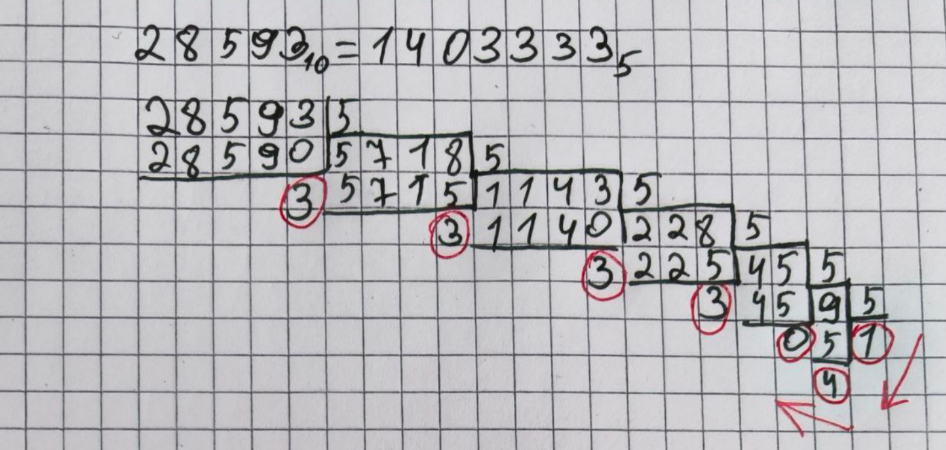 28593₁₀ = 1403333₅
28593 5
28590 5718 5
3 5715 1143 5
3 1140 228 5
3 225 45 5
3 45 9 5
0 5 1
4